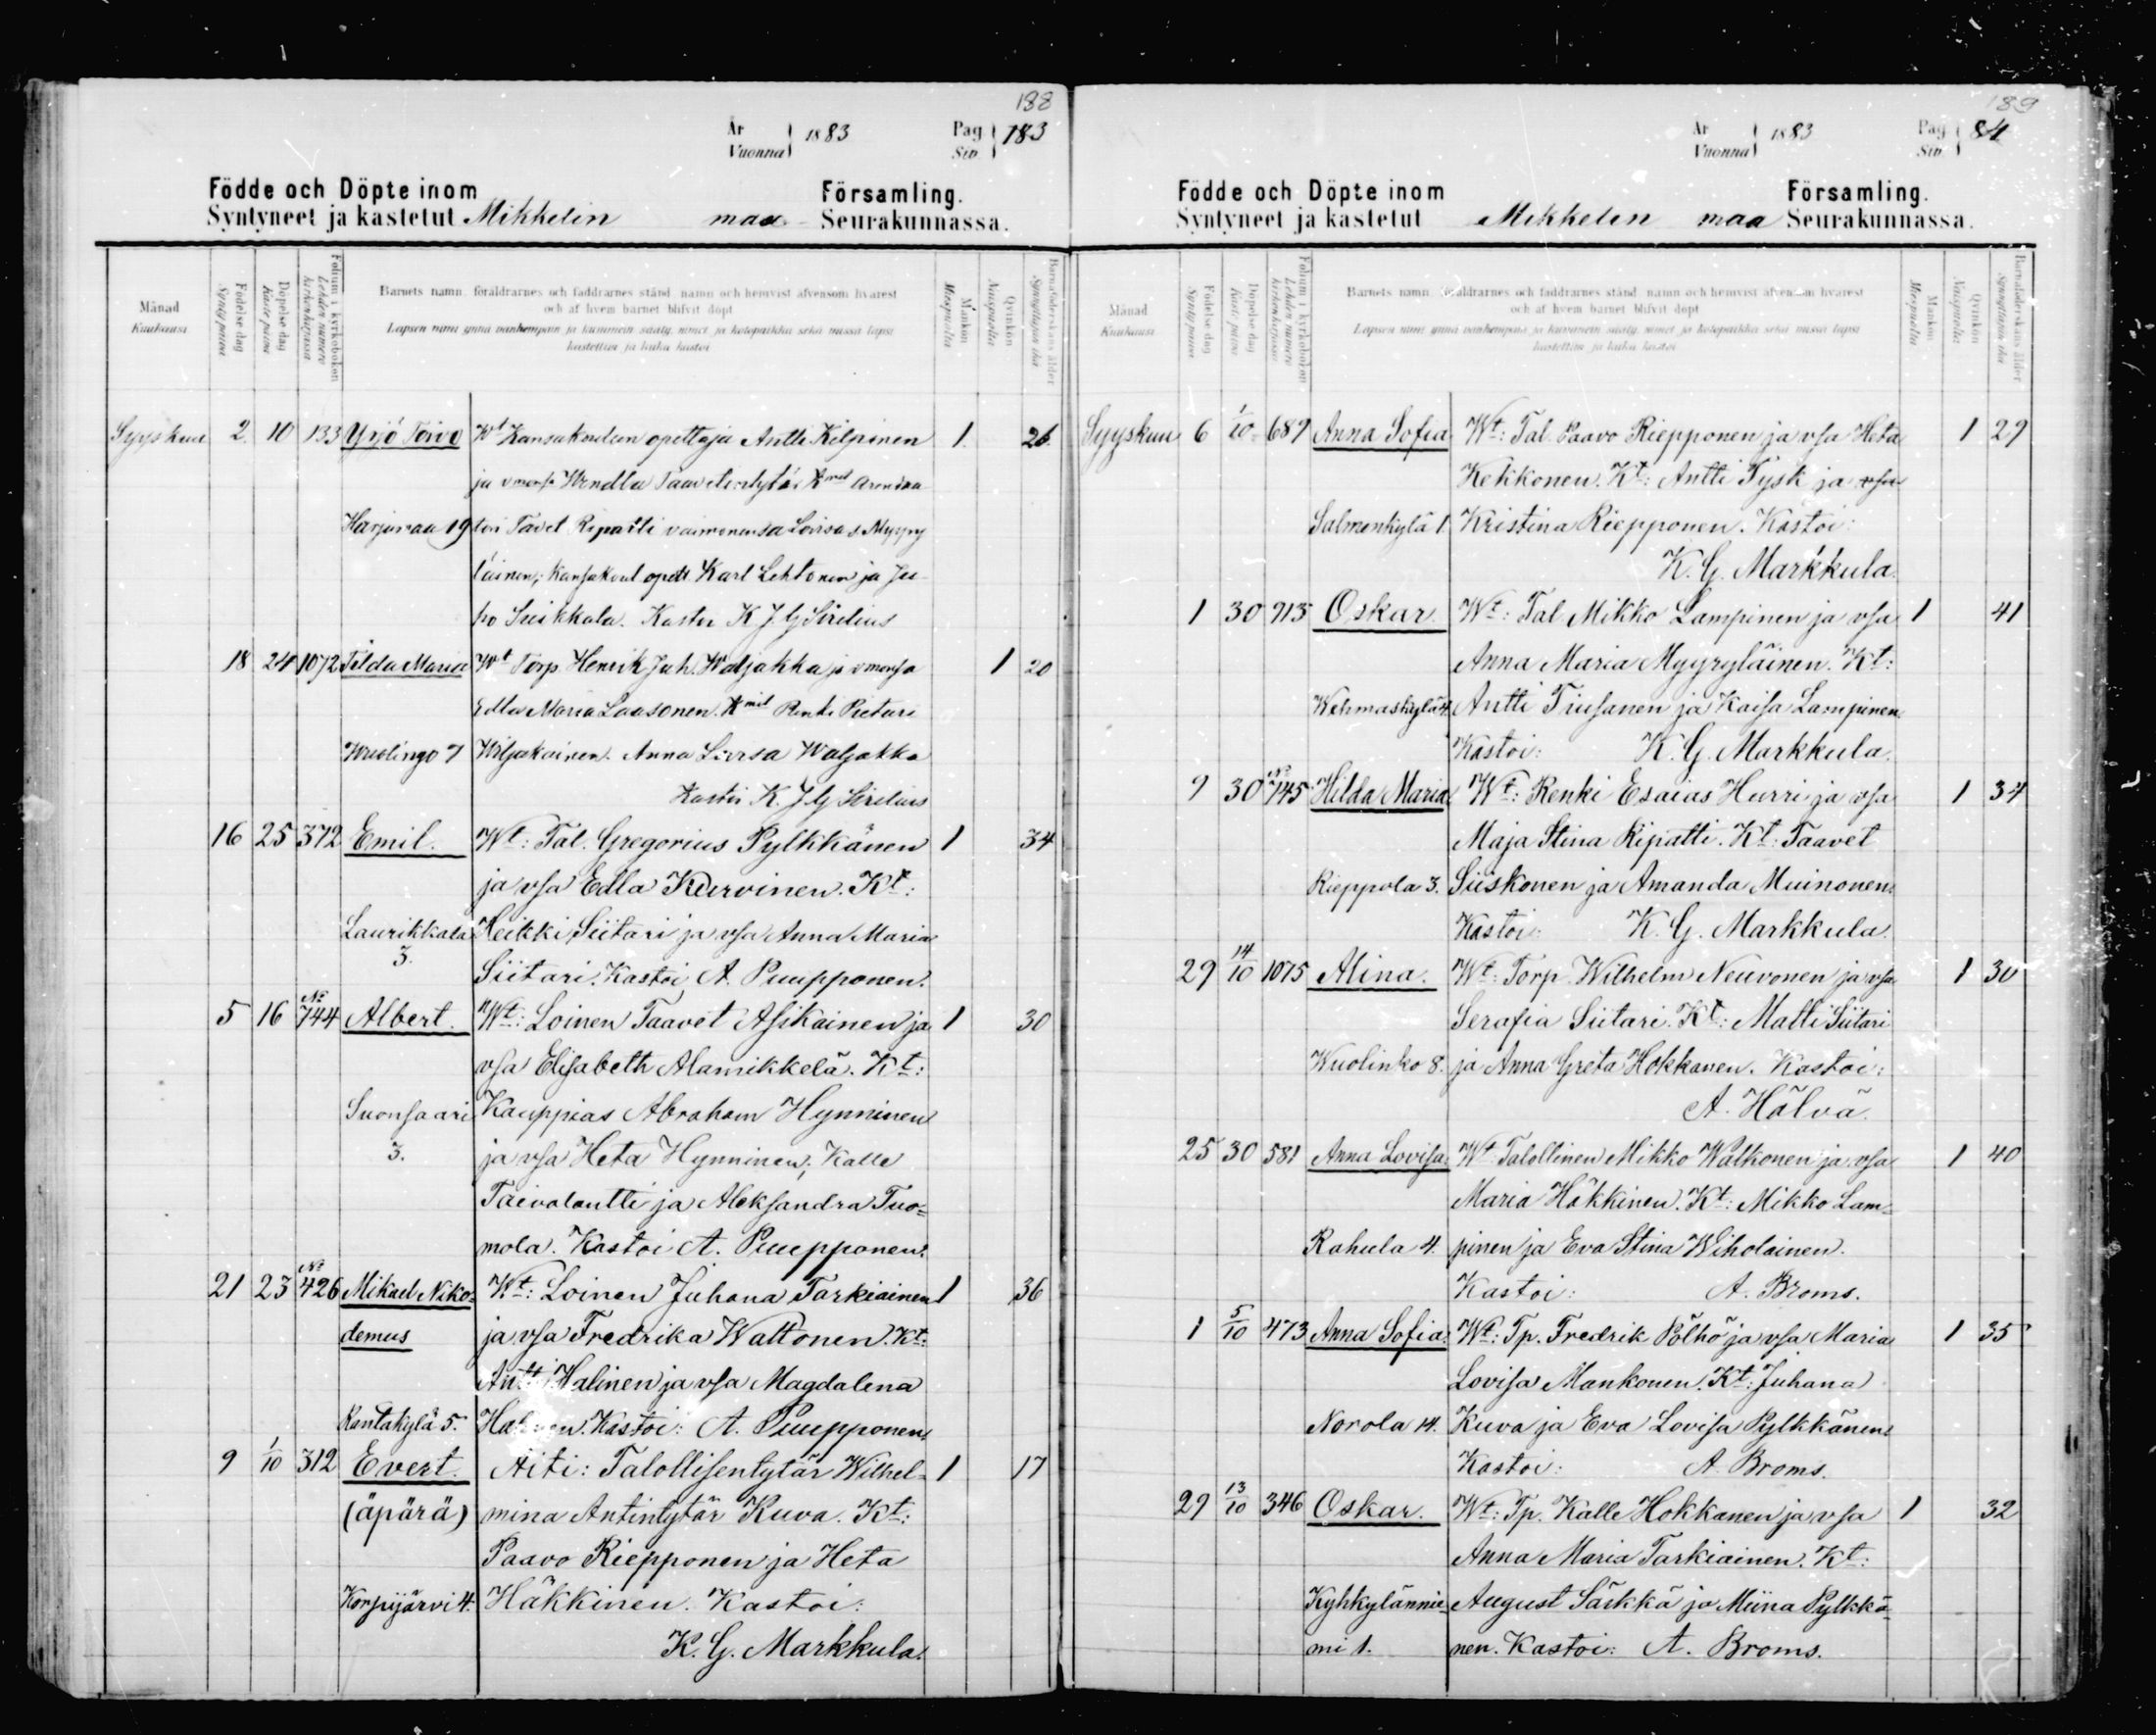 188
År
Vuonna
1883
Pag
Siv.
183
Födde och Döpte inom
Församling.
Syntyneet ja kastetut Mikkelin maa Seurakunnassa.
Månad
Kuukausi
Födelse dag
Synty päivä
Döpelse dag
Kaste päivä
Folium i kyrkoboken
Lehden numero kirkonkirjassa
Barnets namn, föräldrarnes och faddrarnes stånd, namn och hemvist äfvensom hvarest
och af hvem barnet blifvit döpt
Lapsen nimi ynnä vanhempain ja kummein sääty, nimet ja kotopaikka sekä missä lapsi
kastettiin ja kuka kastoi
Mankön
Miespuolia
Qvinkön
Naispuolia
Barnaföderskans ålder
Synnyttäjän ikä
Syyskuu 2. 10 133 Yrjö Toivo Wt Kansakoulun opettaja Antti Kilpinen 1. 26
ja vmonsa Wendla Taavetintytär Kmit Arendaa
Harjumaa 19 tori Tavet Ripatti vaimonensa Lovisa s. Myyry
läinen; Kansakoul opett Karl Lehtonen ja Ju
ho Suikkala. Kastoi K J G Sirelius
18 24 1072 Tilda Maria Wt Torp Henrik Juh. Waljakka ja vmonsa 1 20
Edla Maria Laasonen. Kmit Renki Pietari
Wuolingo 7 Wiljakainen. Anna Lovisa Waljakka
Kastoi K. J G Sirelius
16 25 372 Emil. Wt: Tal. Gregorius Pylkkänen 1 34
ja vsa Edla Kurvinen. Kt:
Laurikkala Heikki Siitari ja vsa Anna Maria
3. Siitari. Kastoi A. Puupponen.
5 16 No 744 Albert. Wt: Loinen Taavet Asikainen ja 1 30
vsa Elisabeth Alamikkelä. Kt:
Suonsaari Kauppias Abraham Hynninen
3. ja vsa Heta Hynninen; Kalle
Taivalantti ja Aleksandra Tuo=
mola. Kastoi A. Puupponen.
21 23 No 426 Mikael Niko= Wt: Loinen Juhana Tarkiainen 1 36
demus ja vsa Fredrika Wattonen. Kt:
Antti Halinen ja vsa Magdalena
Rantakylä 5. Halinen. Kastoi: A. Puupponen.
9 1/10 312 Evert. Äiti: Talollisentytär Wilhel= 1 17
(äpärä) mina Antintytär Kuva. Kt:
Paavo Riepponen ja Heta
Korpijärvi 4. Häkkinen. Kastoi:
K. G. Markkula.
189
År
Vuonna
1883
Pag
Siv
84
Födde och Döpte inom
Församling.
Syntyneet ja kastetut Mikkelin maa Seurakunnassa.
Månad
Kuukausi
Födelse dag
Synty päivä
Döpelse dag
Kaste päivä
Folium i kyrkoboken
Lehden numero kirkonkirjassa
Barnets namn, föräldrarnes och faddrarnes stånd, namn och hemvist äfvensom hvarest
och af hvem barnet blifvit döpt
Lapsen nimi ynnä vanhempain ja kummein sääty, nimet ja kotopaikka sekä missä lapsi
kastettiin ja kuka kastoi
Mankön
Miespuolia
Qvinkön
Naispuolia
Barnaföderskans ålder
Synnyttäjän ikä
Syyskuu 6 1/10 689 Anna Sofia Wt: Tal. Paavo Riepponen ja vsa Heta 1 29
Kekkonen. Kt: Antti Tysk ja vsa
Salmenkylä 1. Kristina Riepponen. Kastoi:
K. G. Markkula.
1 30 913 Oskar. Wt: Tal. Mikko Lampinen ja vsa 1 41
Anna Maria Myyryläinen. Kt:
Wehmaskylä 4. Antti Tiusanen ja Kaisa Lampinen.
Kastoi: K. G. Markkula.
9 30 No 745 Hilda Maria. Wt: Renki Esaias Hurri ja vsa 1 34
Maja Stina Ripatti. Kt: Taavet
Rieppola 3. Siiskonen ja Amanda Muinonen.
Kastoi: K. G. Markkula.
29 14/10 1075 Alina. Wt: Torp. Wilhelm Neuvonen ja vsa 1 30
Serafia Siitari. Kt: Matti Siitari
Wuolinko 8. ja Anna Greta Hokkanen. Kastoi:
A. Hälvä.
25 30 581 Anna Lovisa. Wt Talollinen Mikko Walkonen ja vsa 1 40
Maria Häkkinen. Kt: Mikko Lam=
Rahula 4. pinen ja Eva Stina Wiholainen.
Kastoi: A. Broms.
1 5/10 473 Anna Sofia. Wt: Tp. Fredrik Pölhö ja vsa Maria 1 35
Lovisa Mankonen. Kt: Juhana
Norola 14. Kuva ja Eva Lovisa Pylkkänen.
Kastoi: A. Broms.
29 13/10 346 Oskar. Wt: Tp. Kalle Hokkanen ja vsa 1 32
Anna Maria Tarkiainen. Kt:
Kyhkylännie= August Särkkä ja Miina Pylkkä=
mi 1. nen. Kastoi: A. Broms.